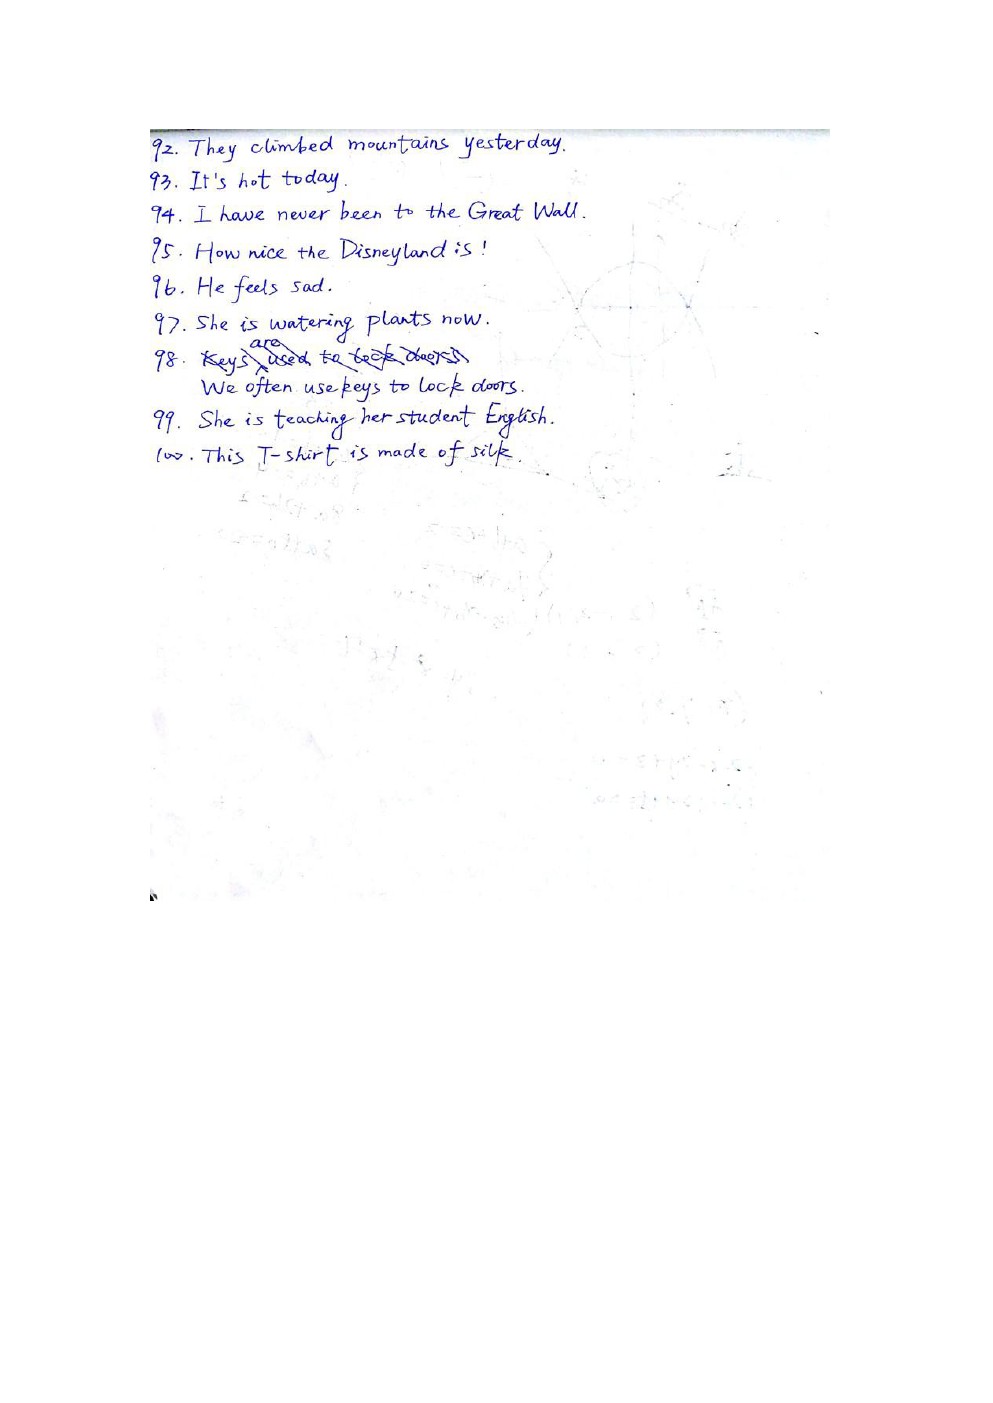 92. They climbed mountains yesterday.
93. It's hot today.
94. I have never been to the Great Wall.
95. How nice the Disneyland is!
96. He feels sad.
97. She is watering plants now.
98. Keys are used to lock doors
We often use keys to lock doors.
99. She is teaching her student English.
100. This T-shirt is made of silk.